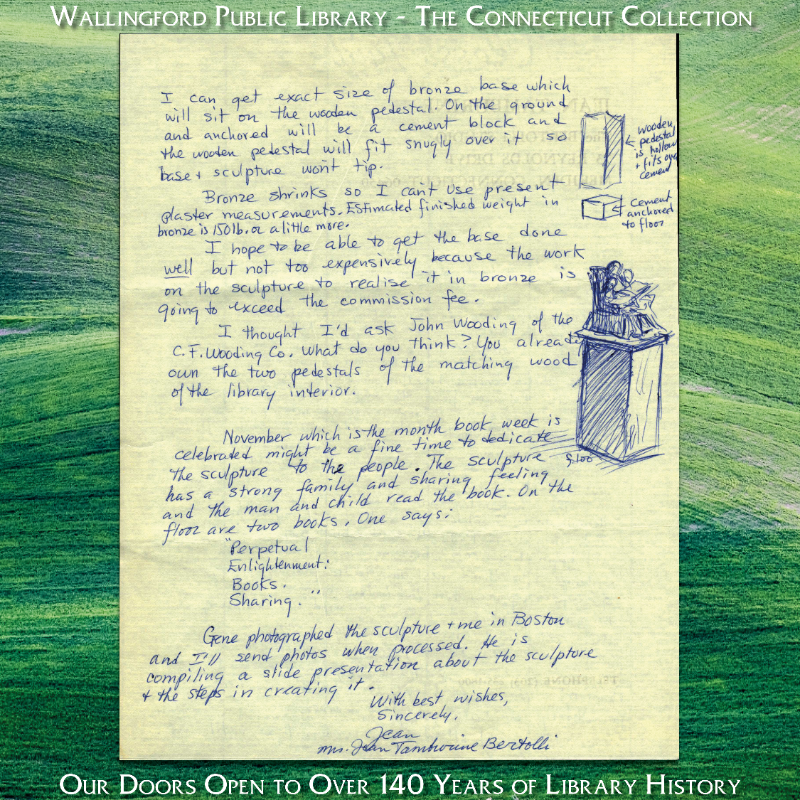 WALLINGFORD PUBLIC LIBRARY - THE CONNECTICUT COLLECTION
I can get exact size of bronze base which
will sit on the wooden pedestal. On the ground
and anchored will be a cement block and
the wooden pedestal will fit snugly over it so
base + sculpture won't tip.
Bronze shrinks so I can't use present
plaster measurements. Estimated finished weight in
bronze is 150 lb. or a little more.
I hope to be able to get the base done
well but not too expensively because the work
on the sculpture to realise it in bronze is
going to exceed the commission fee.
I thought I'd ask John Wooding of the
C.F. Wooding Co. What do you think? You already
own the two pedestals of the matching wood
of the library interior.
wooden
pedestal
is hollow
+ fits over
cement
cement
anchored
to floor
floor
November which is the month book week is
celebrated might be a fine time to dedicate
the sculpture to the people. The sculpture
has a strong family and sharing feeling
and the man and child read the book. On the
floor are two books. One says:
"Perpetual
Enlightenment:
Books.
Sharing."
Gene photographed the sculpture + me in Boston
and I'll send photos when processed. He is
compiling a slide presentation about the sculpture
+ the steps in creating it.
With best wishes,
Sincerely,
Jean
Mrs. Jean Tamborine Bertolli
OUR DOORS OPEN TO OVER 140 YEARS OF LIBRARY HISTORY